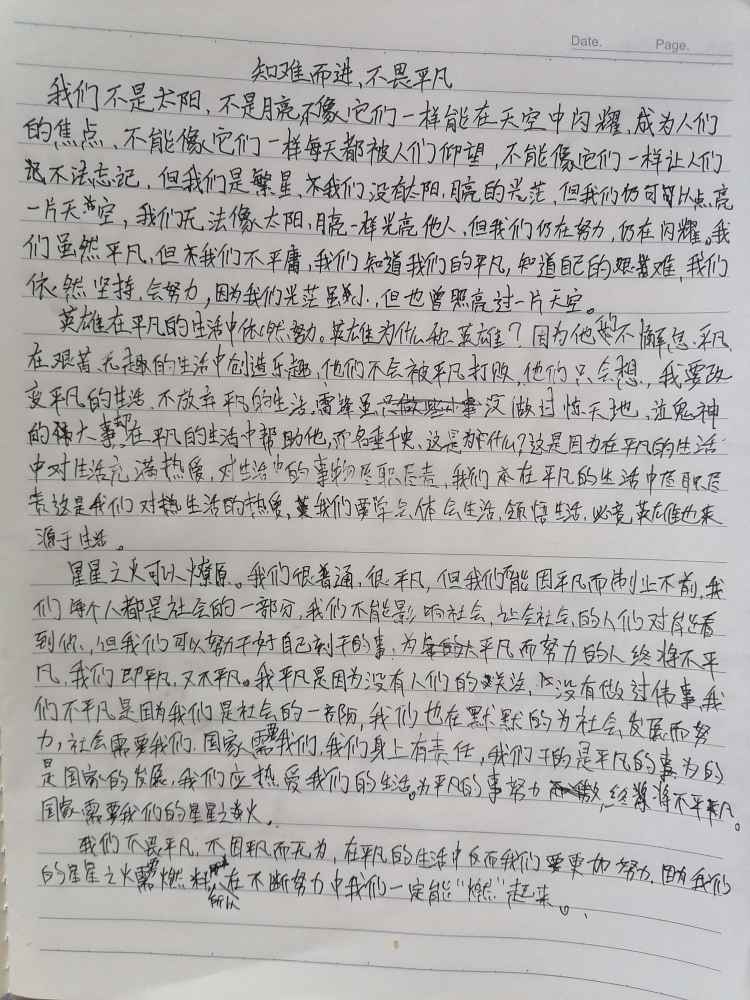 Date.
Page.
知难而进,不畏平凡
我们不是太阳,不是月亮,不像它们一样能在天空中闪耀,成为人们
的焦点、不能像它们一样每天都被人们仰望,不能像它们一样让人们
无法忘记,但我们是繁星,我们没有太阳、月亮的光茫,但我们仍可以点亮
一片天空,我们无法像太阳、月亮一样光亮他人,但我们仍在努力,仍在闪耀。我
们虽然平凡,但我们不平庸,我们知道我们的平凡,知道自己的艰难,我们
依然坚持,会努力,因为我们光茫虽小,但也曾照亮过一片天空。
英雄在平凡的生活中依然努力。英雄为什么称英雄?因为他们不懈怠.平凡,
在艰苦无趣的生活中创造乐趣,他们不会被平凡打败,他们只会想,我要改
变平凡的生活,不放弃平凡的生活,雷锋虽没做过惊天地、泣鬼神
的伟大事,却在平凡的生活中帮助他,而名垂千史,这是为什么?这是因为在平凡的生活
中对生活充满热爱,对生活中的事物尽职尽责,我们亦在平凡的生活中尽职尽
责这是我们对生活的热爱,我们要学会体会生活,领悟生活,必竟英雄也来
源于生活。
星星之火可以燎原。我们很普通,很平凡,但我们不能因平凡而制止不前,我
们每个人都是社会的一部分,我们不能影响社会,让社会的人们对看
到你,但我们可以努干好自己刻干的事,为平凡而努力的人终将不平
凡,我们即平凡,又不平凡。我平凡是因为没有人们的关注,没有做过伟事,我
们不平凡是因为我们是社会的一部份,我们也在默默的为社会发展而努
力,社会需要我们,国家需要我们,我们身上有责任,我们干的是平凡的事,为的
是国家的发展,我们应热爱我们的生活。为平凡的事努力,终将不平凡。
国家需要我们的星星之火。
我们不畏平凡,不因平凡而无为,在平凡的生活中反而我们要更加努力,因为我们
的星星之火需燃料,所以在不断努力中我们一定能“燃”起来。